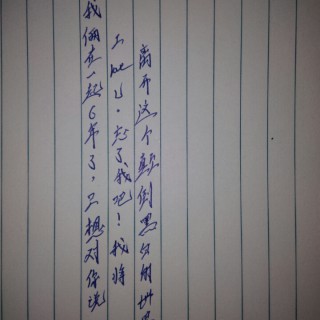 我俩在一起6年了,只想对你说
忘了我吧!我将
离开这个颠倒黑白的世